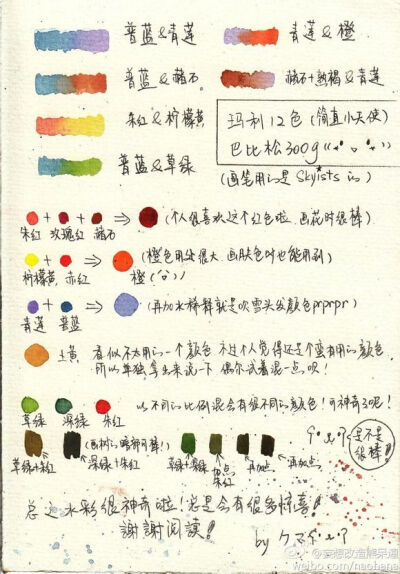 普蓝&青莲
青莲&橙
普蓝&赭石
赭石+熟褐&青莲
朱红&柠檬黄
玛利12色(简直小天使)
巴比松300g
普蓝&草绿
(画笔用的是Skyists的)
(个人很喜欢这个红色啦.画花时很棒)
朱红 玫瑰红 赭石
(橙色用处很大.画肤色时也能用到)
柠檬黄 赤红 橙
(再加水稀释就是吹雪头发颜色prprpr)
青莲 普蓝
土黄 看似不太用的一个颜色 不过个人觉得还是个蛮有用的颜色.
所以单独拿出来说一下 偶尔试着混一点.呗!
以不同的比例混会有很不同的颜色!可神奇了呢!
草绿 深绿 朱红
是不是很棒!
草绿+朱红
深绿+朱红
草绿+深绿
加点朱红
再加点
再加点
总之水彩很神奇啦!总是会有很多惊喜!
謝謝阅读!
by クマ
weibo.com/naohana